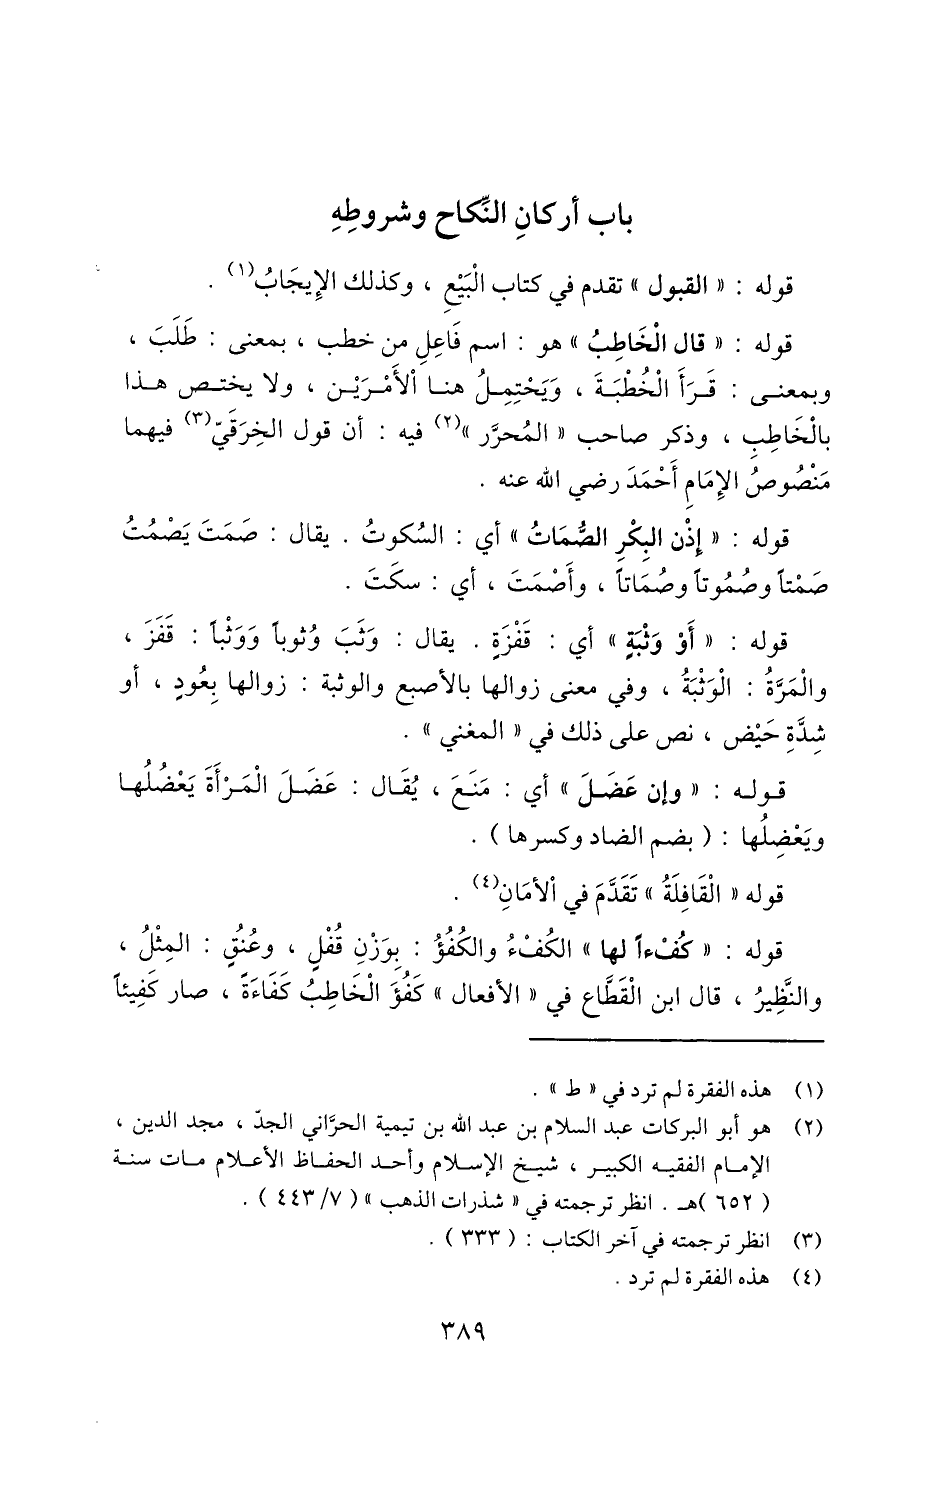 باب أركانِ النِّكاح وشروطِهِ
قوله : « القبول » تقدم في كتاب الْبَيْعِ ، وكذلك الإِيجَابُ(١) .
قوله : « قال الْخَاطِبُ » هو : اسم فَاعِلِ من خطب ، بمعنى : طَلَبَ ،
وبمعنـى : قَـرَأَ الْخُطْبَـةَ ، وَيَحْتِمِـلُ هنـا اْلأَمْـرَيْـن ، ولا يختـص هـذا
بالْخَاطِبِ ، وذكر صاحب « المُحرَّر »(٢) فيه : أن قول الخِرَقيّ(٣) فيهما
مَنْصُوصُ الإِمَامِ أَحْمَدَ رضي الله عنه .
قوله : « إِذْن البِكْرِ الصُّمَاتُ » أي : السُكوتُ . يقال : صَمَتَ يَصْمُتُ
صَمْتاً وصُمُوتاً وصُمَاتاً ، وأَصْمَتَ ، أي : سكَتَ .
قوله : « أَوْ وَثْبَةٍ » أي : قَفْزَةٍ . يقال : وَثَبَ وُثوباً وَوَثْباً : قَفَزَ ،
والْمَرَّةُ : الْوَثْبَةُ ، وفي معنى زوالها بالأصبع والوثبة : زوالها بِعُودٍ ، أو
شِدَّةِ حَيْض ، نص على ذلك في « المغني » .
قـولـه : « وإن عَضَـلَ » أي : مَنَـعَ ، يُقَـال : عَضَـلَ الْمَـرْأَةَ يَعْضُلُهـا
ويَعْضِلُها : ( بضم الضاد وكسرها ) .
قوله « الْقَافِلَةُ » تَقَدَّمَ في اْلأَمَانِ(٤) .
قوله : « كُفْءاً لها » الكُفْءُ والكُفُؤُ : بِوَزْنِ قُفْلٍ ، وعُنُقٍ : المِثْلُ ،
والنَّظِيرُ ، قال ابن الْقَطَّاع في « الأفعال » كَفُؤَ الْخَاطِبُ كَفَاءَةً ، صار كَفِيئاً
(١) هذه الفقرة لم ترد في « ط » .
(٢) هو أبو البركات عبد السلام بن عبد الله بن تيمية الحرَّاني الجدّ ، مجد الدين ،
الإمـام الفقيـه الكبيـر ، شيـخ الإسـلام وأحـد الحفـاظ الأعـلام مـات سنـة
( ٦٥٢ )هـ . انظر ترجمته في « شذرات الذهب » ( ٧/ ٤٤٣ ) .
(٣) انظر ترجمته في آخر الكتاب : ( ٣٣٣ ) .
(٤) هذه الفقرة لم ترد .
٣٨٩